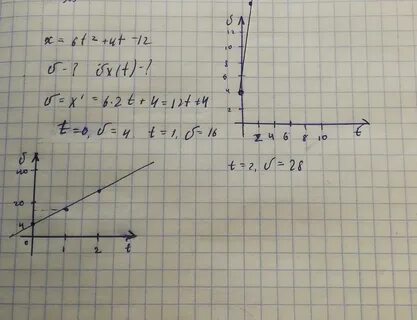 x = 6t² + 4t - 12
υ - ? υx(t) - ?
υ = x' = 6·2t + 4 = 12t + 4
t = 0, υ = 4 t = 1, υ = 16
υ
12
10
8
6
4
2
2 4 6 8 10 t
t = 2, υ = 28
υ
40
20
4
0 1 2 t